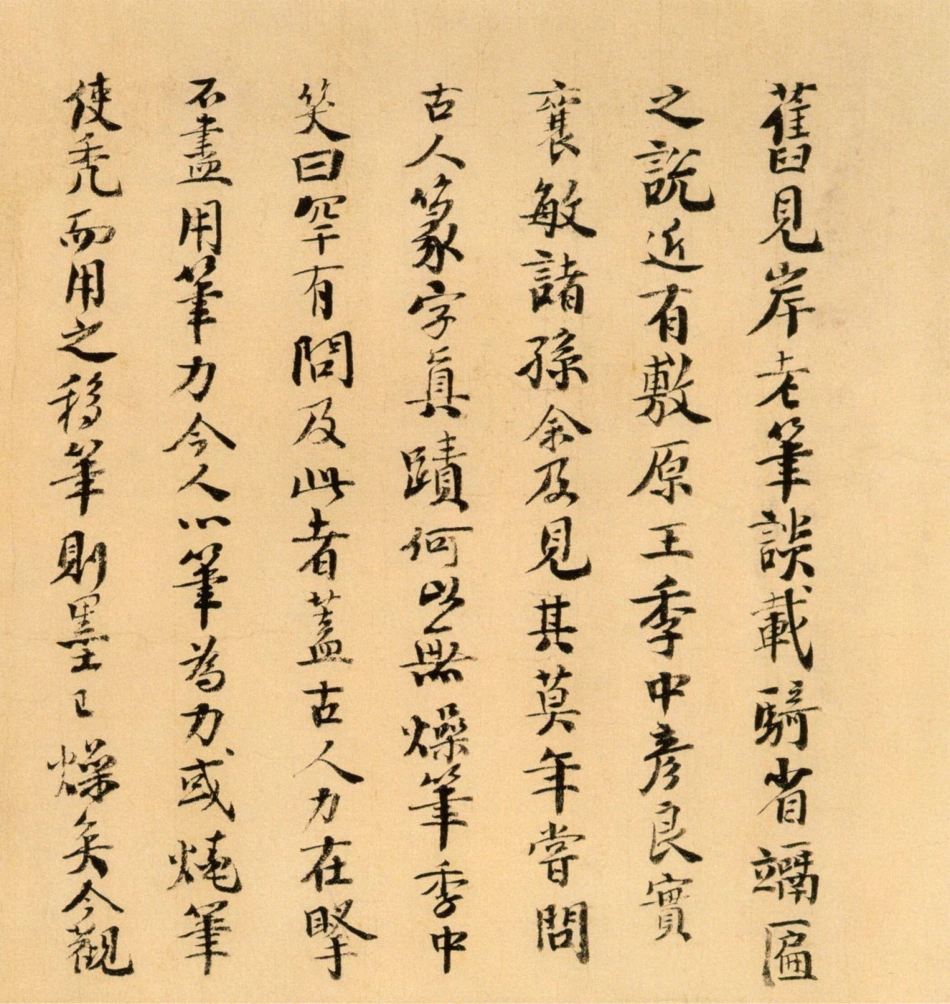 舊見岸老筆談載騎省𥪡匾
之說近有敷原王季中彥良實
襄敏諸孫余及見其莫年嘗問
古人篆字真蹟何以無燥筆季中
笑曰罕有問及此者蓋古人力在掔
不盡用筆力今人以筆為力或燒筆
使禿而用之移筆則墨已燥矣今觀